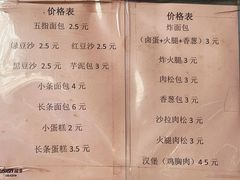 价格表
五指面包 2.5 元
绿豆沙 2.5 元 红豆沙 2.5 元
黑豆沙 2.5 元 芋泥包 3 元
小条面包 4 元
长条面包 6 元
小蛋糕 2 元
长条蛋糕 3.5 元
价格表
炸面包
（卤蛋+火腿+香葱）3 元
炸火腿 3 元
肉松包 3 元
香葱包 3 元
沙拉肉松 3 元
火腿肉松 3 元
汉堡（鸡胸肉）4 5 元